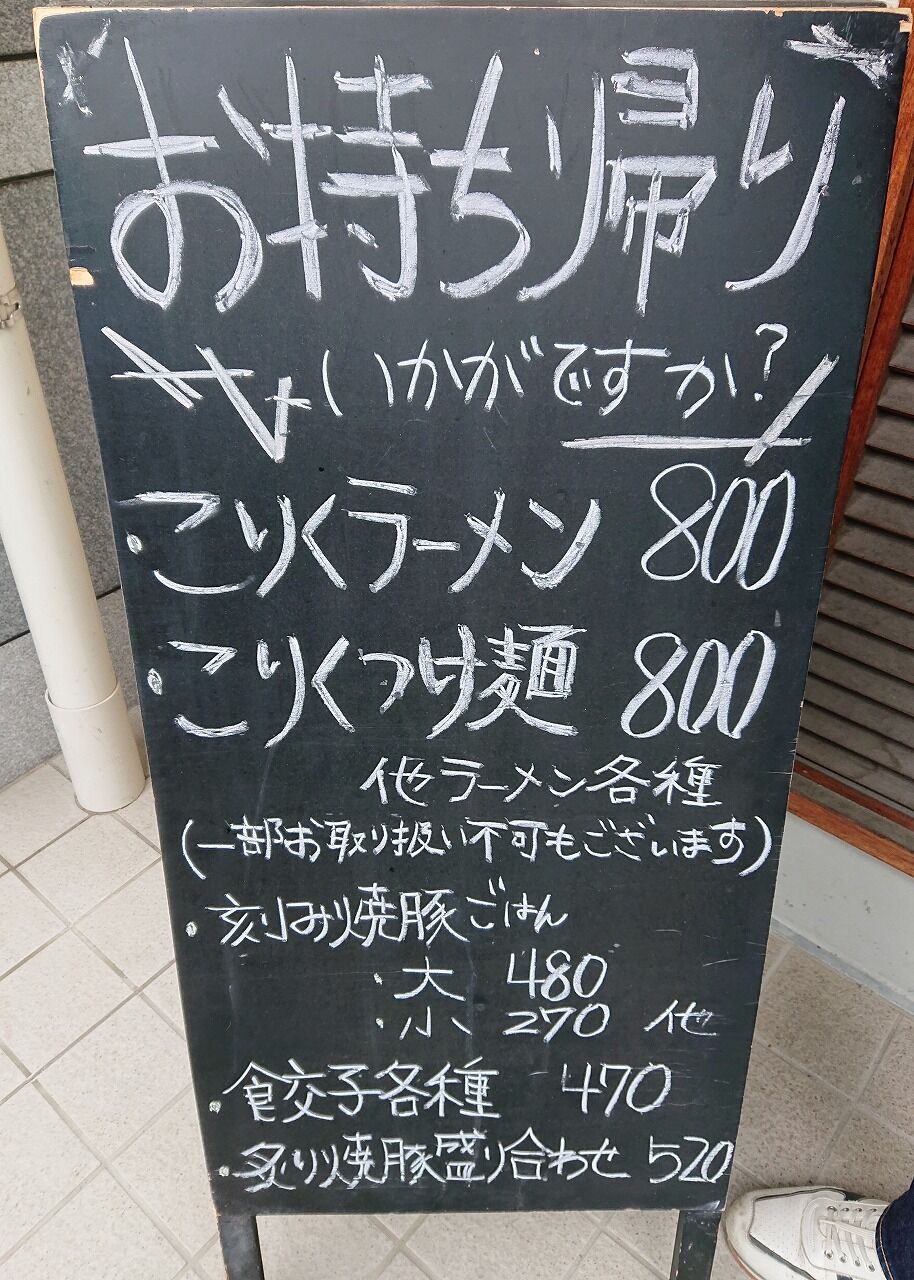 お持ち帰り
いかがですか?
・こりくラーメン 800
・こりくつけ麺 800
他ラーメン各種
(一部お取り扱い不可もございます)
・刻み焼豚ごはん
・大 480
・小 270 他
・餃子各種 470
・炙り焼豚盛り合わせ 520